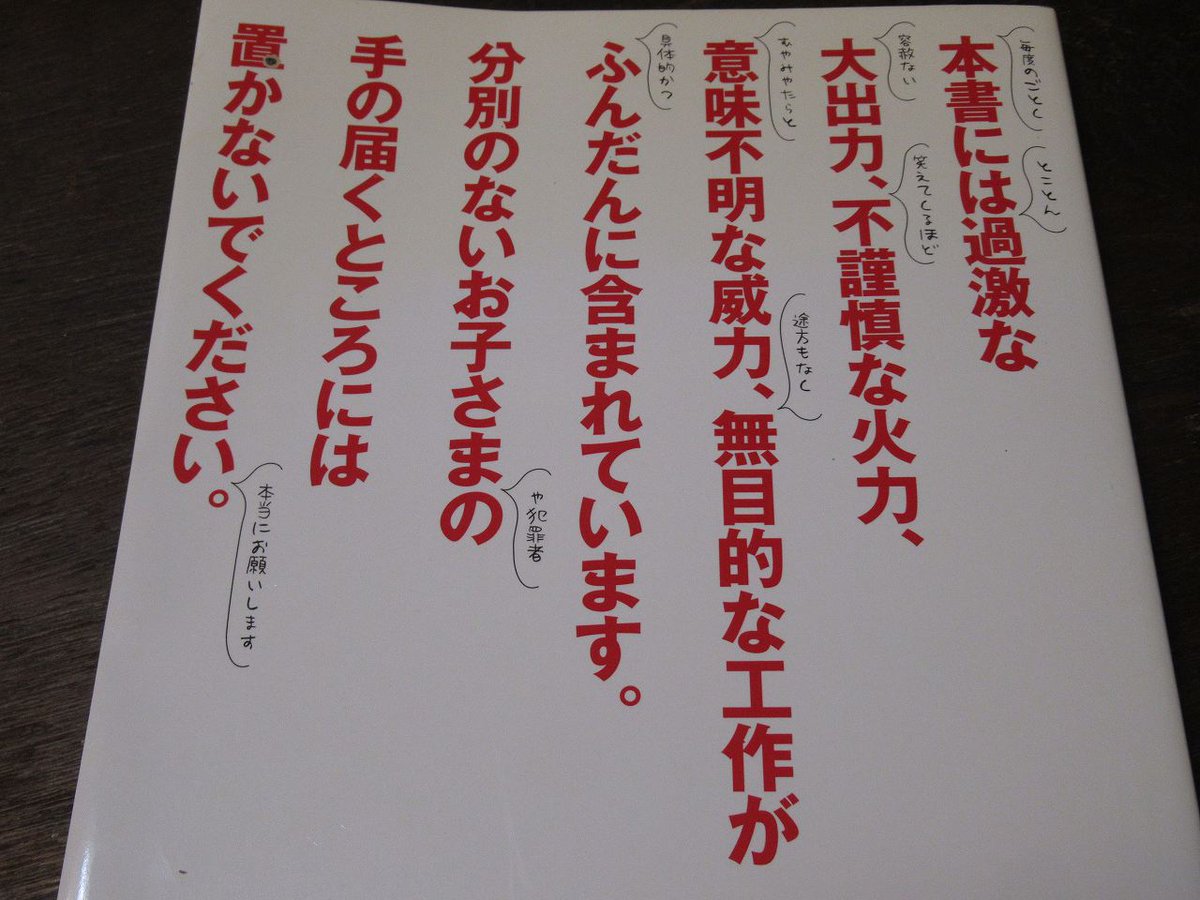 毎度のごとく
とことん
本書には過激な
容赦ない
笑えてくるほど
大出力、不謹慎な火力、
むやみやたらと
途方もなく
意味不明な威力、無目的な工作が
具体的かつ
ふんだんに含まれています。
や犯罪者
分別のないお子さまの
手の届くところには
本当にお願いします
置かないでください。